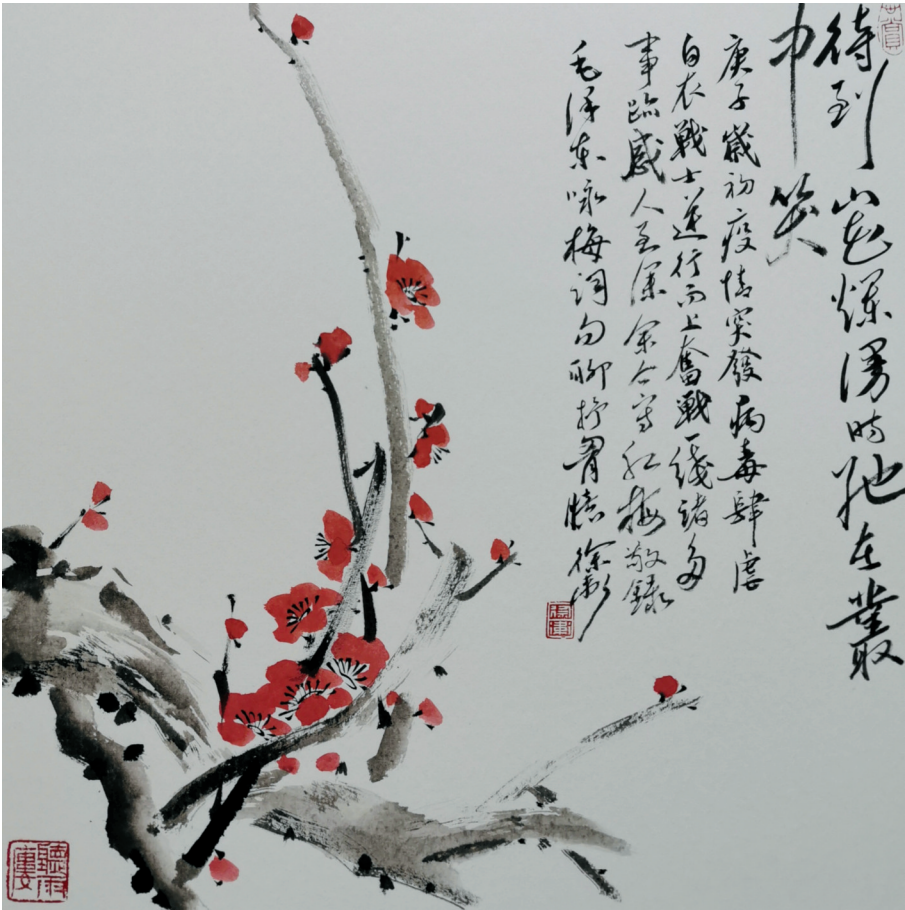 待到山花爛漫时她在叢
中笑
庚子歲初疫情突發病毒肆虐
白衣戰士逆行而上奮戰一綫諸多
事跡感人至深余今寫紅梅敬錄
毛澤東咏梅詞句聊抒胸臆 徐
聽雨樓